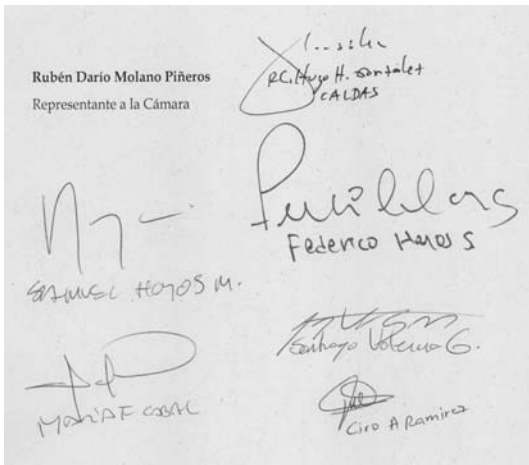 Rubén Darío Molano Piñeros
Representante a la Cámara
R.C. Hugo H. González
CALDAS
Federico Hoyos S
SAMUEL HOYOS M.
Santiago Valencia G.
MARIA F CABAL
Ciro A Ramirez